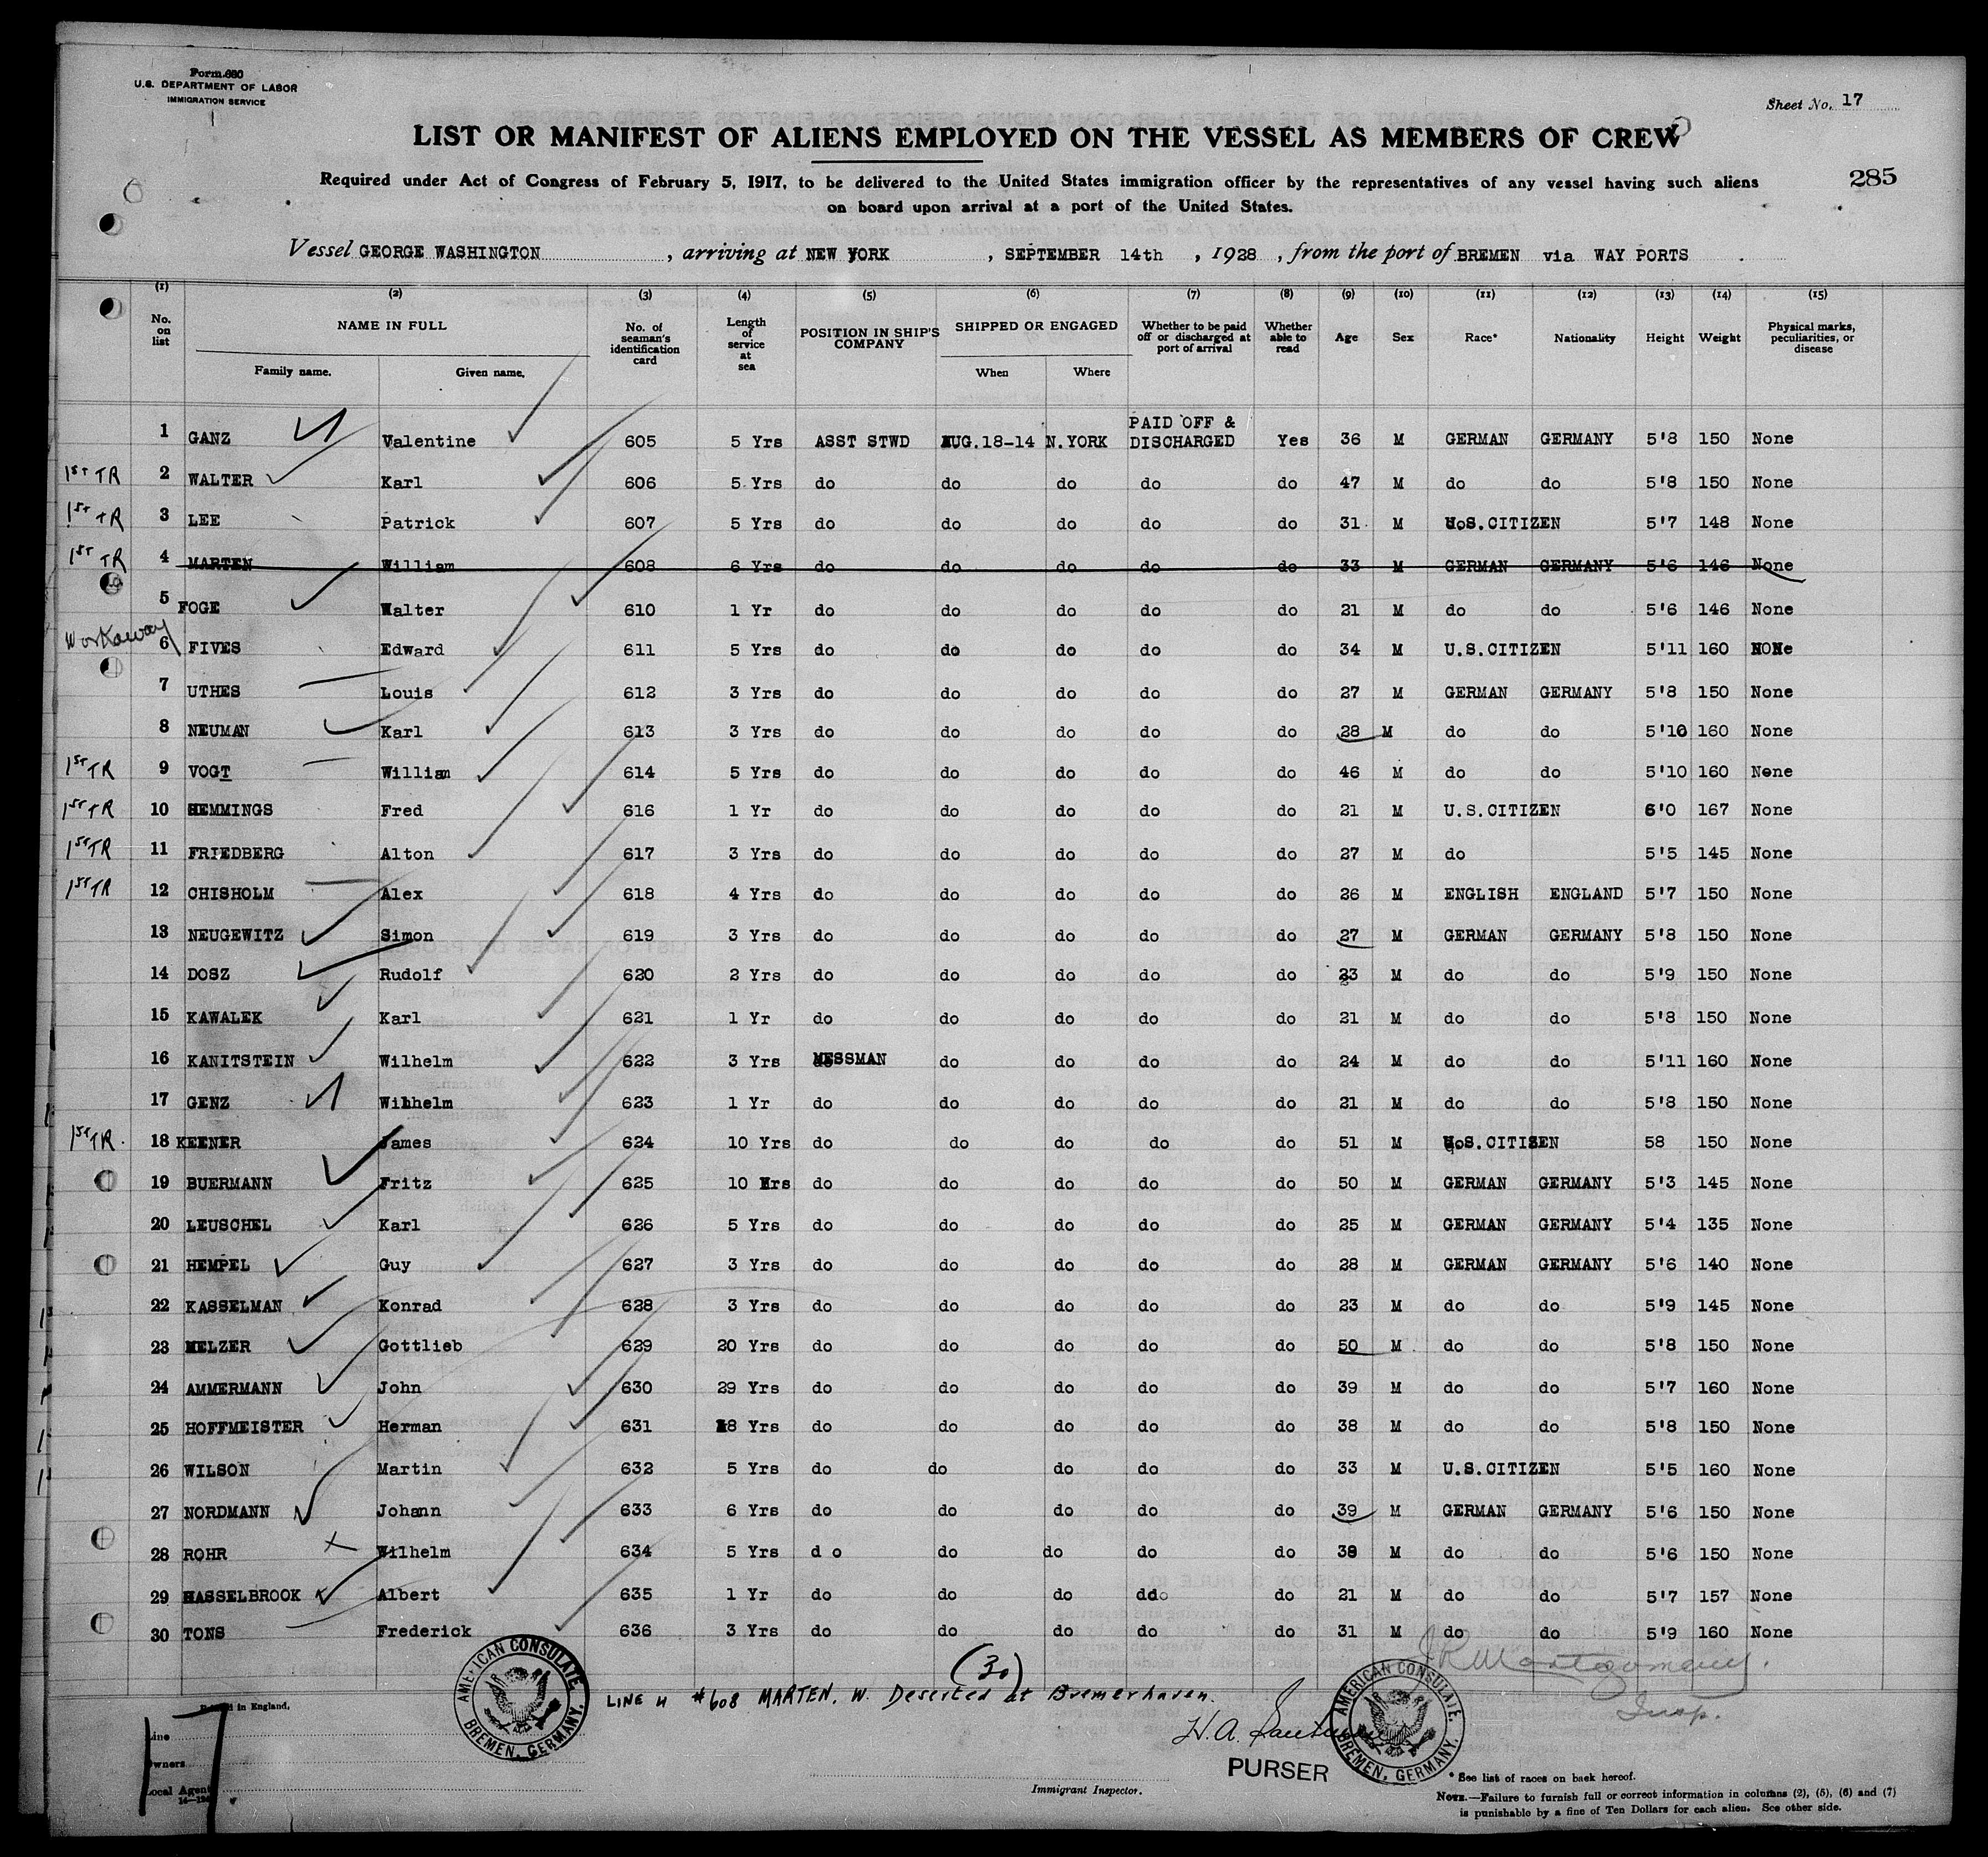 Form 680
U.S. DEPARTMENT OF LABOR
IMMIGRATION SERVICE
Sheet No. 17
LIST OR MANIFEST OF ALIENS EMPLOYED ON THE VESSEL AS MEMBERS OF CREW
285
Required under Act of Congress of February 5, 1917, to be delivered to the United States immigration officer by the representatives of any vessel having such aliens
on board upon arrival at a port of the United States.
Vessel GEORGE WASHINGTON, arriving at NEW YORK, SEPTEMBER 14th, 1928, from the port of BREMEN via WAY PORTS
(1) (2) (3) (4) (5) (6) (7) (8) (9) (10) (11) (12) (13) (14) (15)
No. on list NAME IN FULL Family name. Given name. No. of seaman's identification card Length of service at sea POSITION IN SHIP'S COMPANY SHIPPED OR ENGAGED When Where Whether to be paid off or discharged at port of arrival Whether able to read Age Sex Race* Nationality Height Weight Physical marks, peculiarities, or disease
1 GANZ Valentine 605 5 Yrs ASST STWD AUG.18-14 N.YORK PAID OFF & DISCHARGED Yes 36 M GERMAN GERMANY 5'8 150 None
1st TR 2 WALTER Karl 606 5 Yrs do do do do do 47 M do do 5'8 150 None
1st TR 3 LEE Patrick 607 5 Yrs do do do do do 31 M U.S.CITIZEN 5'7 148 None
1st TR 4 MARTEN William 608 6 Yrs do do do do do 33 M GERMAN GERMANY 5'6 146 None
5 FOGE Walter 610 1 Yr do do do do do 21 M do do 5'6 146 None
Workaway 6 FIVES Edward 611 5 Yrs do do do do do 34 M U.S.CITIZEN 5'11 160 NONe
7 UTHES Louis 612 3 Yrs do do do do do 27 M GERMAN GERMANY 5'8 150 None
8 NEUMAN Karl 613 3 Yrs do do do do do 28 M do do 5'10 160 None
1st TR 9 VOGT William 614 5 Yrs do do do do do 46 M do do 5'10 160 None
1st TR 10 HEMMINGS Fred 616 1 Yr do do do do do 21 M U.S.CITIZEN 6'0 167 None
1st TR 11 FRIEDBERG Alton 617 3 Yrs do do do do do 27 M do 5'5 145 None
1st TR 12 CHISHOLM Alex 618 4 Yrs do do do do do 26 M ENGLISH ENGLAND 5'7 150 None
13 NEUGEWITZ Simon 619 3 Yrs do do do do do 27 M GERMAN GERMANY 5'8 150 None
14 DOSZ Rudolf 620 2 Yrs do do do do do 23 M do do 5'9 150 None
15 KAWALEK Karl 621 1 Yr do do do do do 21 M do do 5'8 150 None
16 KANITSTEIN Wilhelm 622 3 Yrs MESSMAN do do do do 24 M do do 5'11 160 None
17 GENZ Wilhelm 623 1 Yr do do do do do 21 M do do 5'8 150 None
1st TR. 18 KEENER James 624 10 Yrs do do do do do 51 M U.S.CITISEN 58 150 None
19 BUERMANN Fritz 625 10 Yrs do do do do do 50 M GERMAN GERMANY 5'3 145 None
20 LEUSCHEL Karl 626 5 Yrs do do do do do 25 M GERMAN GERMANY 5'4 135 None
21 HEMPEL Guy 627 3 Yrs do do do do do 28 M GERMAN GERMANY 5'6 140 None
22 KASSELMAN Konrad 628 3 Yrs do do do do do 23 M do do 5'9 145 None
23 MELZER Gottlieb 629 20 Yrs do do do do do 50 M do do 5'8 150 None
24 AMMERMANN John 630 29 Yrs do do do do do 39 M do do 5'7 160 None
25 HOFFMEISTER Herman 631 18 Yrs do do do do do 38 M do do 5'8 150 None
26 WILSON Martin 632 5 Yrs do do do do do 33 M U.S.CITIZEN 5'5 160 None
27 NORDMANN Johann 633 6 Yrs do do do do do 39 M GERMAN GERMANY 5'6 150 None
28 ROHR Wilhelm 634 5 Yrs d o do do do do 38 M do do 5'6 150 None
29 HASSELBROOK Albert 635 1 Yr do do do ddo do 21 M do do 5'7 157 None
30 TONS Frederick 636 3 Yrs do do do do do 31 M do do 5'9 160 None
(30)
J R Montgomery.
Insp.
AMERICAN CONSULATE. BREMEN, GERMANY.
LINE 4 #608 MARTEN, W. Deserted at Bremerhaven.
AMERICAN CONSULATE. BREMEN, GERMANY.
H. A.
PURSER
in England.
17
Line
Owners
Local Agent
Immigrant Inspector.
* See list of races on back hereof.
NOTE.—Failure to furnish full or correct information in columns (2), (5), (6) and (7)
is punishable by a fine of Ten Dollars for each alien. See other side.